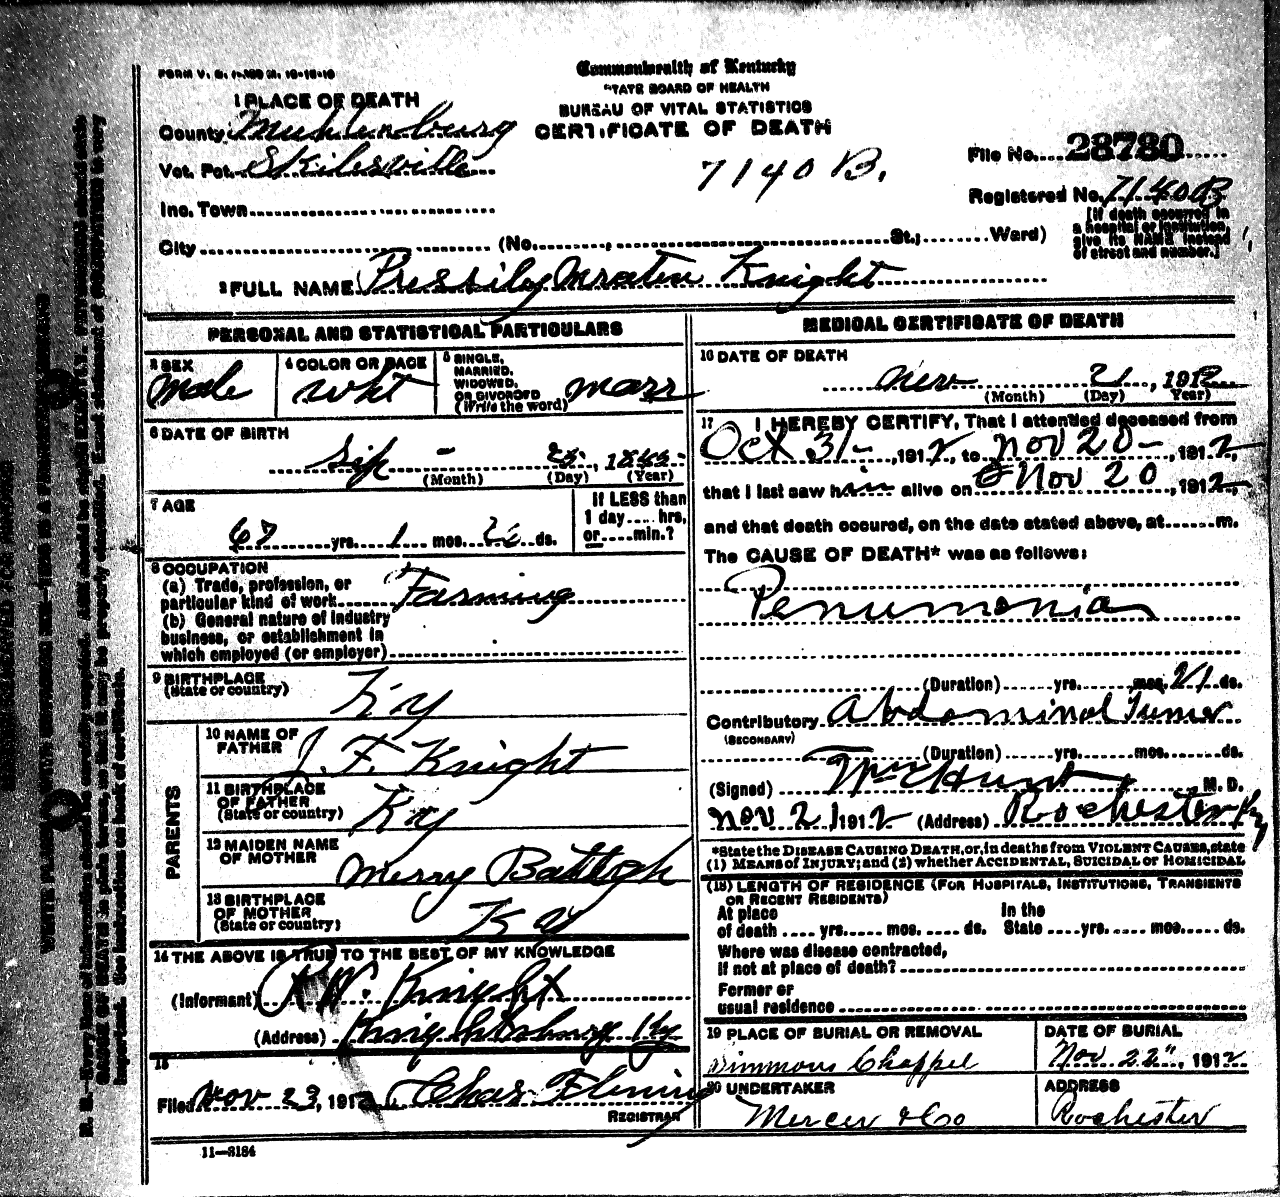 FORM V. S. 1-
Commonwealth of Kentucky
STATE BOARD OF HEALTH
BUREAU OF VITAL STATISTICS
CERTIFICATE OF DEATH
1 PLACE OF DEATH
County Muhlenburg
Vot. Pct. Skilesville
Inc. Town
City (No. , St.; Ward)
7140 B.
File No. 28780
Registered No. 7140B
[If death occurred in
a hospital or institution,
give its NAME instead
of street and number.]
2 FULL NAME Pressily Knight
PERSONAL AND STATISTICAL PARTICULARS
3 SEX
Male
4 COLOR OR RACE
Wht
5 SINGLE,
MARRIED,
WIDOWED,
OR DIVORCED
(Write the word) marr
6 DATE OF BIRTH
Sep - 25, 1845
(Month) (Day) (Year)
7 AGE
67 yrs. 1 mos. ds.
If LESS than
1 day.... hrs.
or....min.?
8 OCCUPATION
(a) Trade, profession, or
particular kind of work Farming
(b) General nature of industry
business, or establishment in
which employed (or employer)
9 BIRTHPLACE
(State or country) Ky
PARENTS
10 NAME OF
FATHER J. F. Knight
11 BIRTHPLACE
OF FATHER
(State or country) Ky
12 MAIDEN NAME
OF MOTHER Merry
13 BIRTHPLACE
OF MOTHER
(State or country) Ky
14 THE ABOVE IS TRUE TO THE BEST OF MY KNOWLEDGE
(Informant) R W. Knight
(Address) Knightsburg Ky
15
Filed Nov 23, 1912 Chas Fleming
REGISTRAR
11—3184
MEDICAL CERTIFICATE OF DEATH
16 DATE OF DEATH
Nov 21, 1912
(Month) (Day) (Year)
17 I HEREBY CERTIFY, That I attended deceased from
Oct 31-, 1912, to Nov 20-, 1912,
that I last saw him alive on Nov 20, 1912,
and that death occured, on the date stated above, at......m.
The CAUSE OF DEATH* was as follows:
Penumonia
(Duration) yrs. mos. 21 ds.
Contributory Abdominal Tumor
(SECONDARY)
(Duration) yrs. mos. ds.
(Signed) Hunt M. D.
Nov 21 1912 (Address) Rochester Ky
*State the DISEASE CAUSING DEATH, or, in deaths from VIOLENT CAUSES, state
(1) MEANS OF INJURY; and (2) whether ACCIDENTAL, SUICIDAL OR HOMICIDAL
(18) LENGTH OF RESIDENCE (FOR HOSPITALS, INSTITUTIONS, TRANSIENTS
OR RECENT RESIDENTS)
At place
of death .... yrs..... mos..... ds.
In the
State ....yrs.....mos..... ds.
Where was disease contracted,
If not at place of death?
Former or
usual residence
19 PLACE OF BURIAL OR REMOVAL
Chappel
DATE OF BURIAL
Nov. 22", 1912
20 UNDERTAKER
Mercer & Co
ADDRESS
Rochester